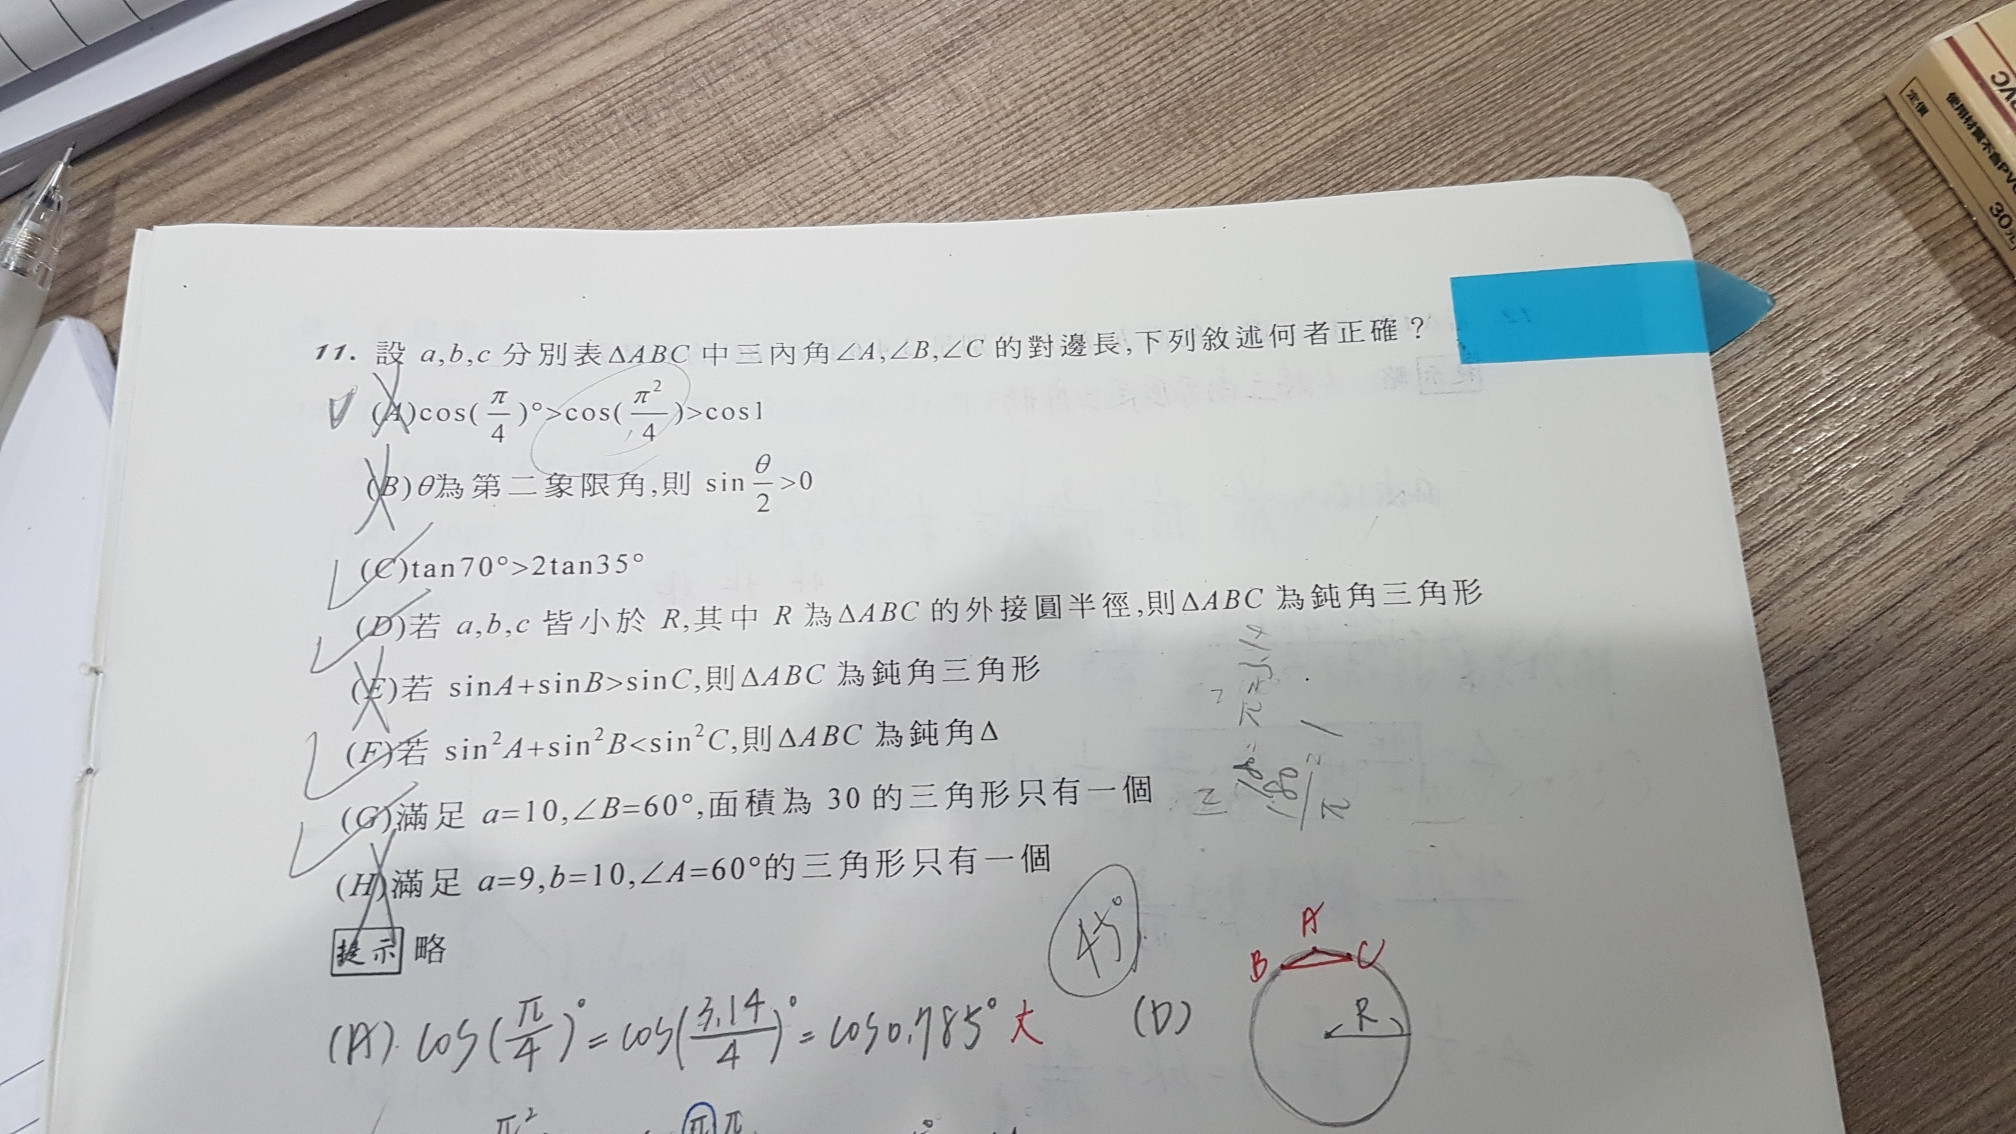 定價
使用材質不含PV
30元
11. 設 a,b,c 分別表ΔABC 中三內角∠A,∠B,∠C 的對邊長,下列敘述何者正確?
(A)cos(π/4)°>cos(π²/4)>cos1
(B)θ為第二象限角,則 sin θ/2 >0
(C)tan70°>2tan35°
(D)若 a,b,c 皆小於 R,其中 R 為ΔABC 的外接圓半徑,則ΔABC 為鈍角三角形
(E)若 sinA+sinB>sinC,則ΔABC 為鈍角三角形
(F)若 sin²A+sin²B<sin²C,則ΔABC 為鈍角Δ
(G)滿足 a=10,∠B=60°,面積為 30 的三角形只有一個
(H)滿足 a=9,b=10,∠A=60°的三角形只有一個
提示 略
45°
(A). cos(π/4)° = cos(3.14/4)° = cos0.785° 大
(D)
A
B
C
R